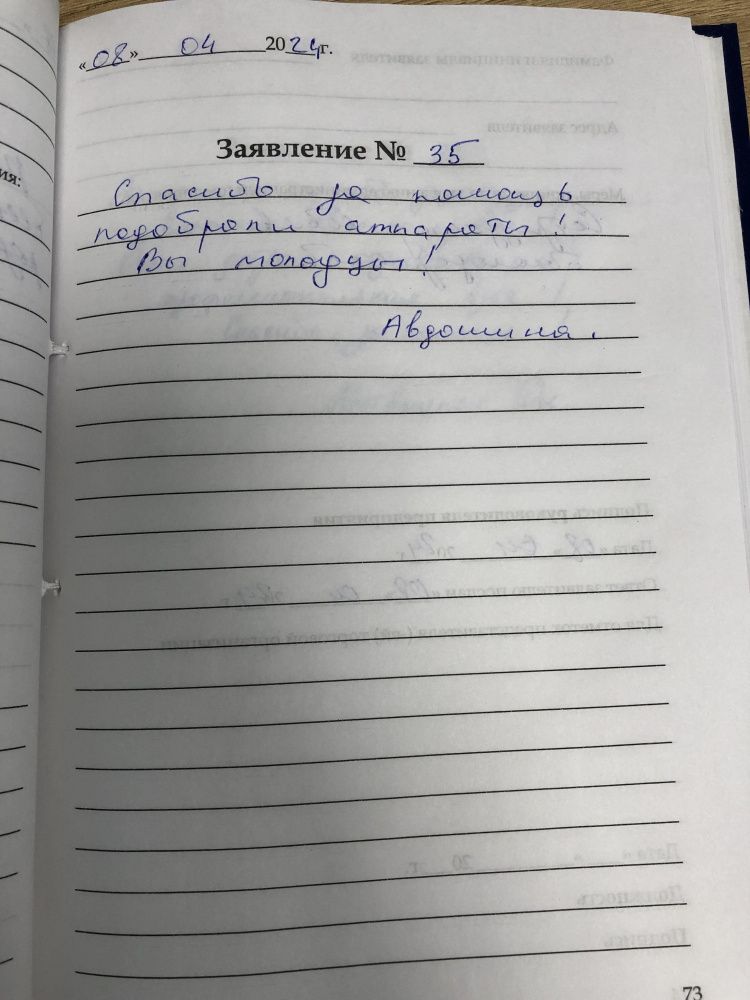 «08» 04 2024г.
Заявление № 35
ия:
Спасибо за помощь
подобрали аппараты!
Вы молодцы!
Авдошина.
73